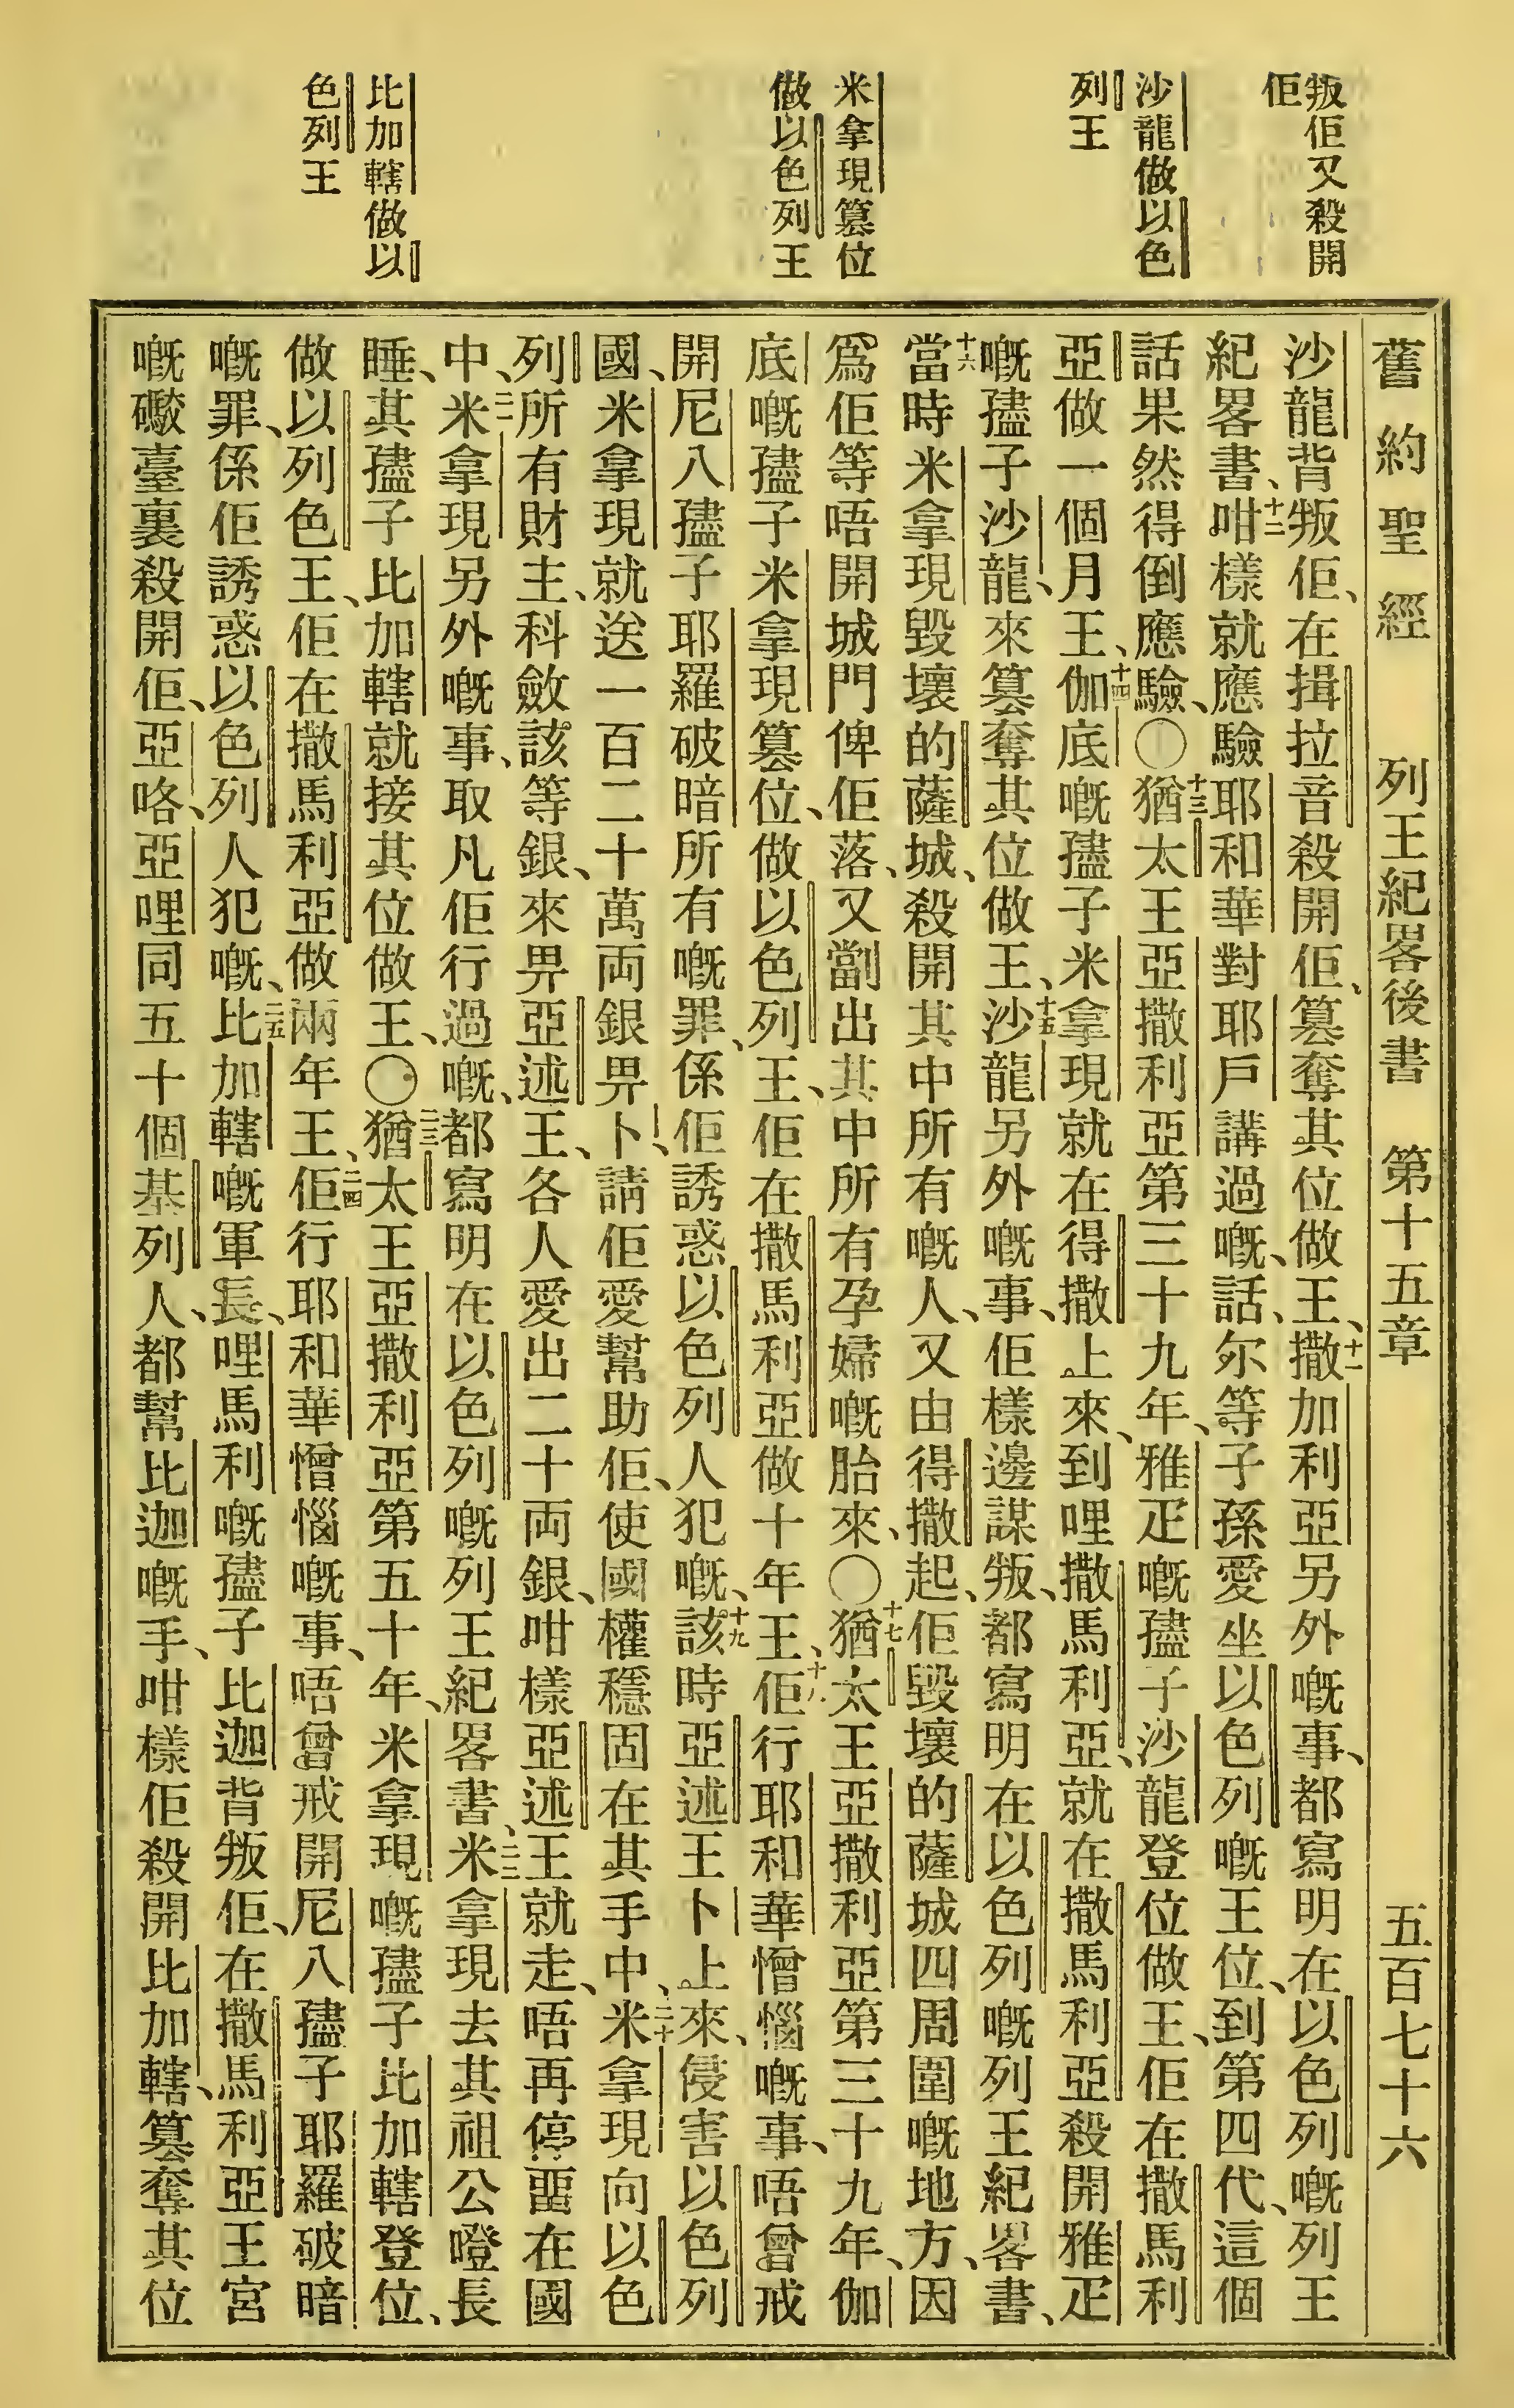 叛佢又殺開
佢
沙龍做以色
列王
米拿現篡位
做以色列王
比加轄做以
色列王
舊約聖經 列王紀畧後書 第十五章 五百七十六
沙龍背叛佢、在揖拉音殺開佢、篡奪其位做王、十一撒加利亞另外嘅事、都寫明在以色列嘅列王
紀畧書、十二咁樣就應驗耶和華對耶戶講過嘅、話、尔等子孫愛坐以色列嘅王位、到第四代、這個
話果然得倒應驗、〇十三猶太王亞撒利亞第三十九年、雅疋嘅孻子沙龍登位做王、佢在撒馬利
亞做一個月王、十四伽底嘅孻子米拿現就在得撒上來、到哩撒馬利亞、就在撒馬利亞殺開雅疋
嘅孻子沙龍、來篡奪其位做王、十五沙龍另外嘅事、佢樣邊謀叛、都寫明在以色列嘅列王紀畧書、
十六當時米拿現毀壞的薩城、殺開其中所有嘅人、又由得撒起、佢毀壞的薩城四周圍嘅地方、因
爲佢等唔開城門俾佢落、又劏出其中所有孕婦嘅胎來、〇十七猶太王亞撒利亞第三十九年、伽
底嘅孻子米拿現篡位、做以色列王、佢在撒馬利亞做十年王、十八佢行耶和華憎惱嘅事、唔曾戒
開尼八孻子耶羅破暗所有嘅罪、係佢誘惑以色列人犯嘅、十九該時亞述王卜上來、侵害以色列
國、米拿現就送一百二十萬両銀畀卜、請佢愛幫助佢、使國權穩固在其手中、二十米拿現向以色
列所有財主、科斂該等銀、來畀亞述王、各人愛出二十両銀、咁樣亞述王就走、唔再停畱在國
中、二一米拿現另外嘅事、取凡佢行過嘅、都寫明在以色列嘅列王紀畧書、二二米拿現去其祖公噔長
睡、其孻子比加轄就接其位做王、〇二三猶太王亞撒利亞第五十年、米拿現嘅孻子比加轄登位、
做以列色王、佢在撒馬利亞做兩年王、二四佢行耶和華憎惱嘅事、唔曾戒開尼八孻子耶羅破暗
嘅罪、係佢誘惑以色列人犯嘅、二五比加轄嘅軍長、哩馬利嘅孻子比迦背叛佢、在撒馬利亞王宮
嘅礮臺裏殺開佢、亞咯、亞哩同五十個基列人、都幫比迦嘅手、咁樣佢殺開比加轄、篡奪其位